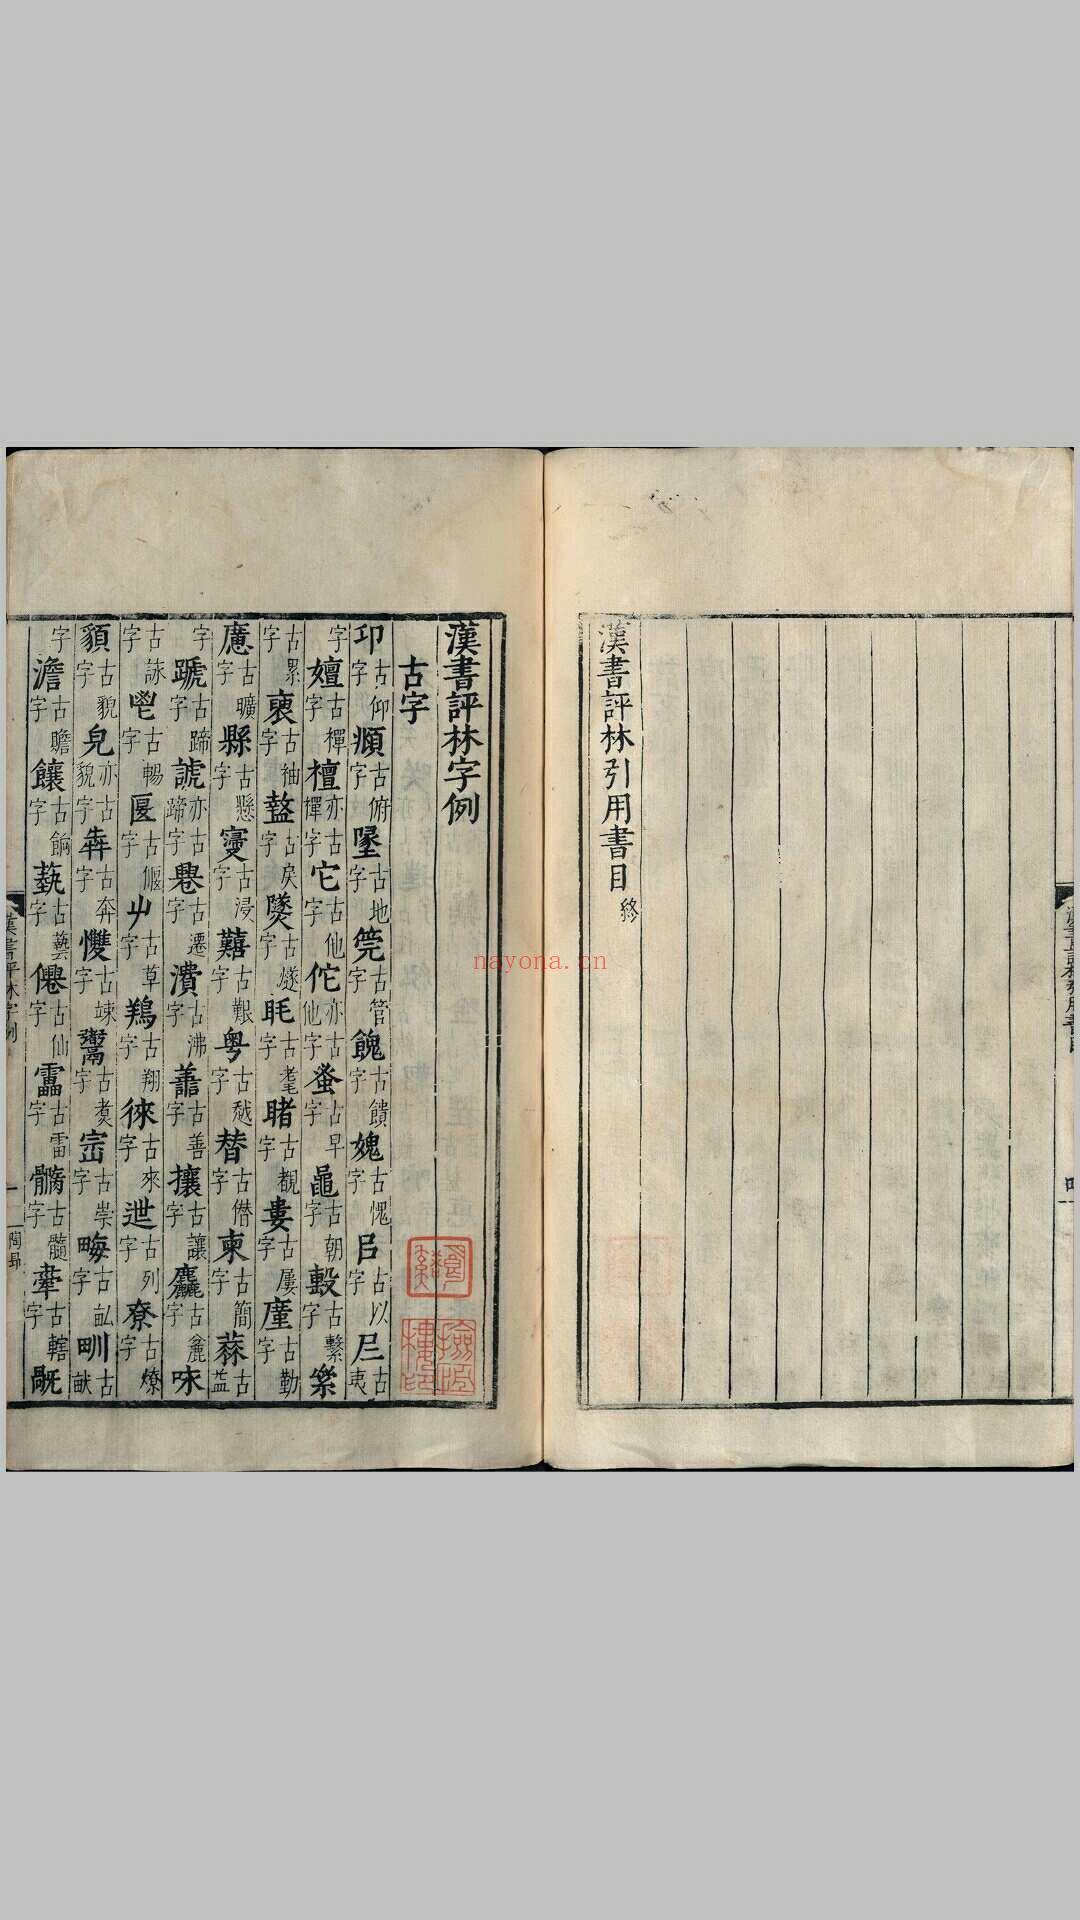 漢書評林引用書目終
漢書評林字例
古字
卬古仰字頫古俯字墬古地字筦古管字餽古饋字媿古愧字㠯古以字𡰥古夷
字嬗古禪字檀亦古禪字它古他字佗亦古他字蚤古早字鼂古朝字毄古繫字絫
古累字褏古袖字盭古戾字㷭古燧字眊古耄字睹古覩字婁古屢字廑古勤
字廆古曠字縣古懸字寖古浸字囏古艱字粤古越字朁古僭字柬古簡字蓻古益
字蹏古蹄字謕亦古蹄字𢍱古遷字㵒古沸字譱古善字攘古讓字麤古麄字咮
古詠字鬯古暢字匽古偃字屮古草字鶈古翔字徠古來字迣古列字尞古燎字
貌古貌字皃亦古貌字犇古奔字㦼古竦字鬻古煮字崈古崇字畮古畝字甽古畎
字澹古贍字饟古餉字蓺古藝字僊古仙字靁古雷字髓古髓字舝古轄字旤
漢書評林字例
一
nayona.cn